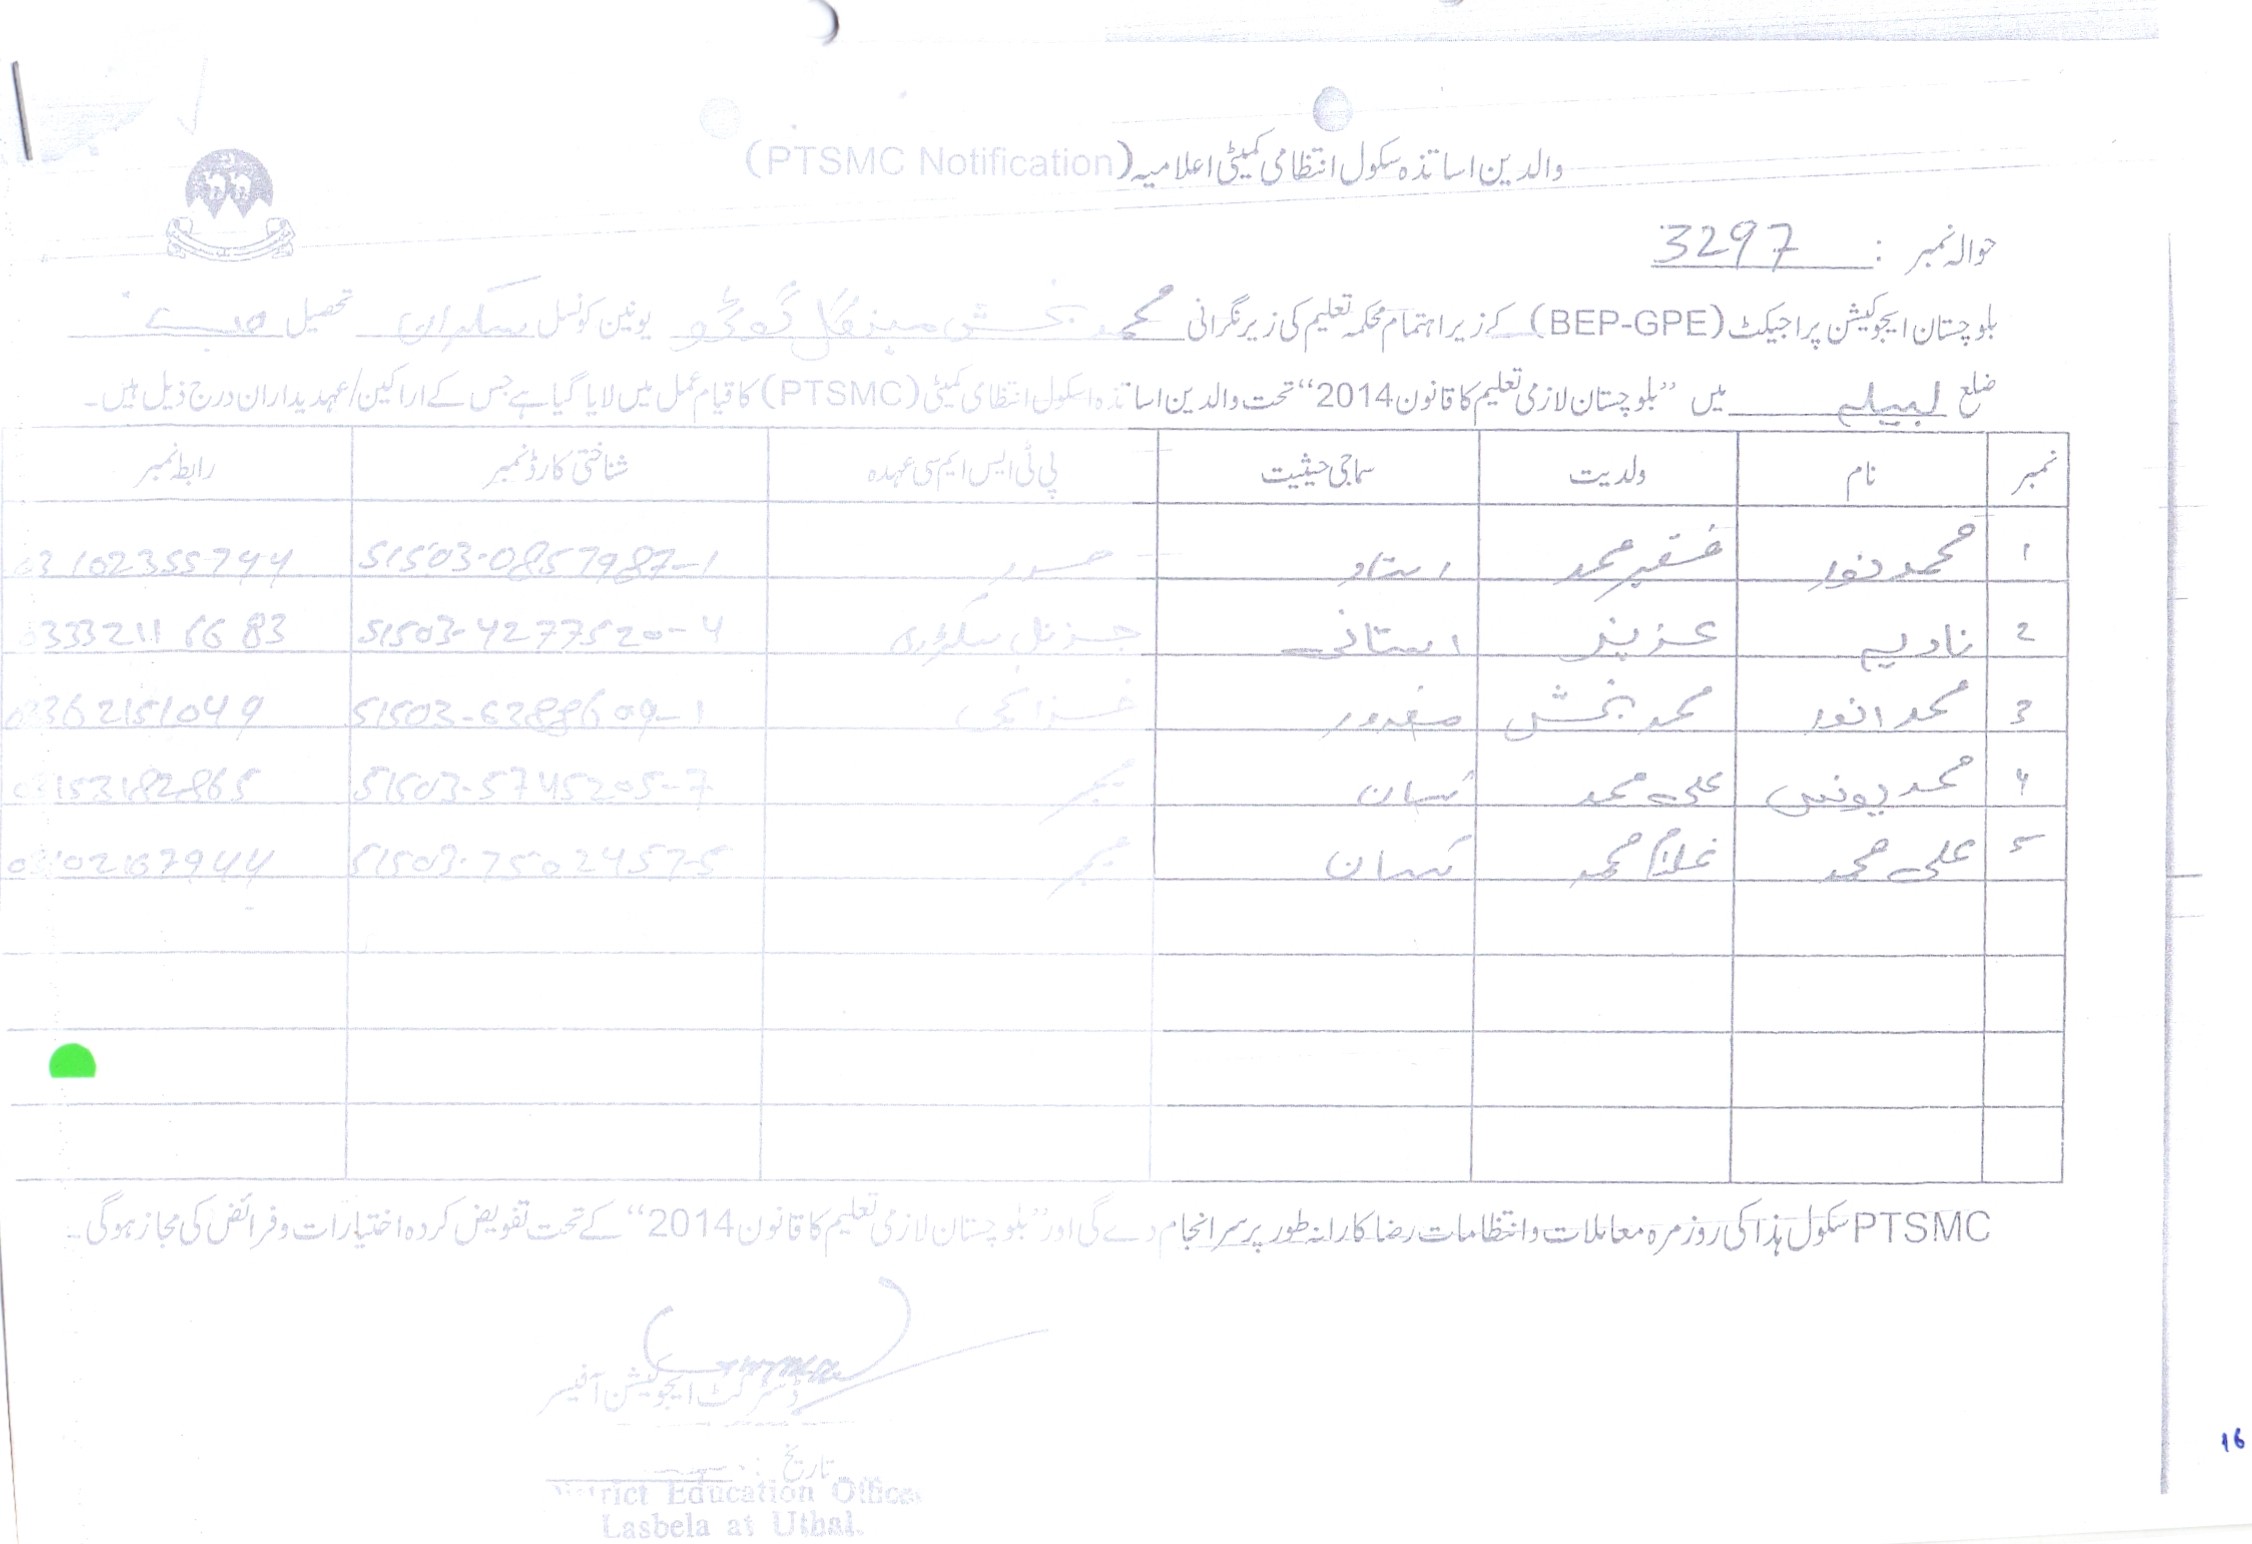 والدین اساتذہ سکول انتظامی کمیٹی اعلامیہ (PTSMC Notification)
حوالہ نمبر : 3297
بلوچستان ایجوکیشن پراجیکٹ (BEP-GPE) کے زیر اہتمام محکمہ تعلیم کی زیر نگرانی محمد بخش مینگل گوٹھ یونین کونسل ساکران تحصیل حب
ضلع لسبیلہ میں ”بلوچستان لازمی تعلیم کا قانون 2014“ تحت والدین اساتذہ اسکول انتظامی کمیٹی (PTSMC) کا قیام عمل میں لایا گیا ہے جس کے اراکین/عہدیداران درج ذیل ہیں۔
نمبر نام ولدیت سماجی حیثیت پی ٹی ایس ایم سی عہدہ شناختی کارڈ نمبر رابطہ نمبر
1 محمد نور فقیر محمد استاد صدر 51503-0857987-1 03102355744
2 نادیہ عزیز استانی جنرل سیکرٹری 51503-4277520-4 03332111683
3 محمد انور محمد بخش مزدور خزانچی 51503-6288609-1 03362151049
4 محمد یونس علی محمد کسان ممبر 51503-5745205-7 03153182865
5 علی محمد غلام محمد کسان ممبر 51503-7502457-5 03102167944
PTSMC سکول ہذا کی روزمرہ معاملات و انتظامات رضا کارانہ طور پر سرانجام دے گی اور ”بلوچستان لازمی تعلیم کا قانون 2014“ کے تحت تفویض کردہ اختیارات و فرائض کی مجاز ہوگی۔
ڈسٹرکٹ ایجوکیشن آفیسر
تاریخ :
District Education Officer
Lasbela at Uthal.
16